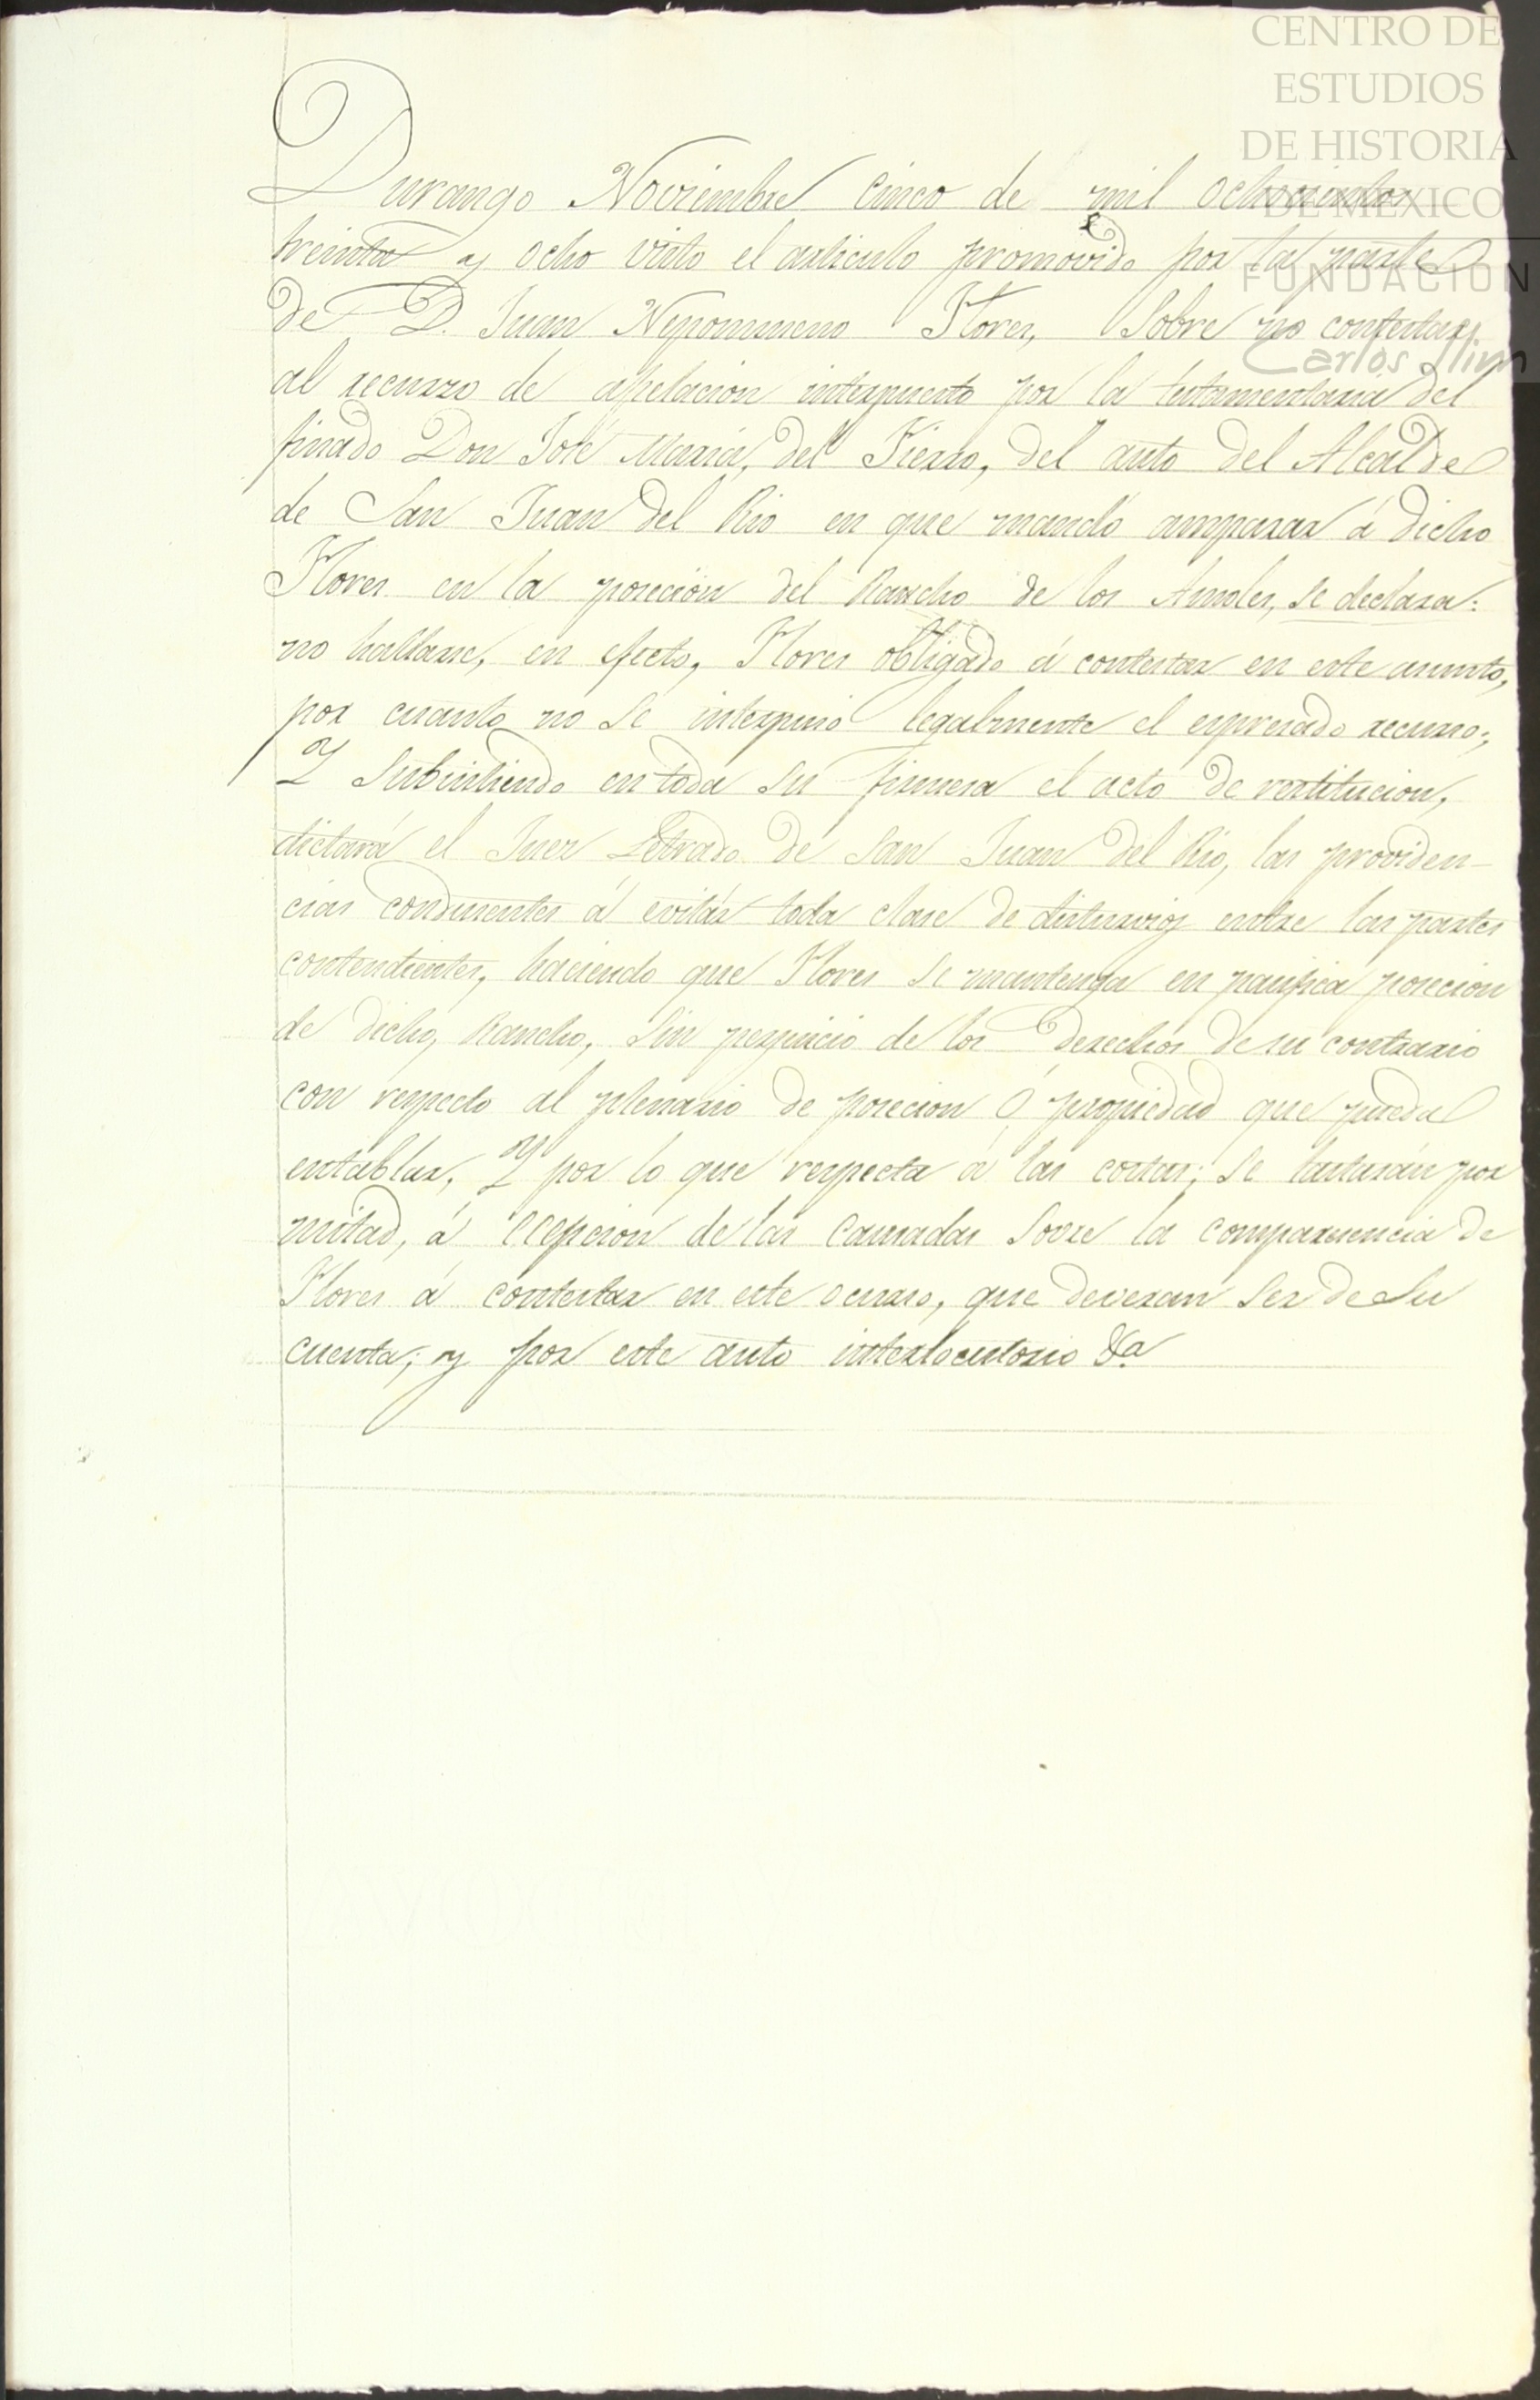 CENTRO DE
ESTUDIOS
DE HISTORIA
DE MÉXICO
FUNDACIÓN
Carlos Slim
Durango Noviembre cinco de mil ochocientos
treinta y ocho visto el articulo promovido por la parte
de D. Juan Nepomuceno Flores, Sobre no contestar
al recurso de apelacion interpuesto por la testamentaria del
finado Don José Maria, del Fierro, del auto del Alcalde
de San Juan del Rio en que mandó amparar á dicho
Flores en la posecion del Rancho de los Amoles, se declara:
no hallarse, en efecto, Flores obligado á contestar en este asunto,
por cuanto no se interpuso legalmente el espresado recurso;
Y Subsistiendo en toda su firmesa el acto de restitucion,
dictará el Juez Letrado de San Juan del Rio, las providen-
cias conducentes á evitár toda clase de disturvios entre las partes
contendientes, haciendo que Flores se mantenga en pacifica posecion
de dicho, Rancho, Sin perjuicio de los Derechos de su contrario
con respecto al plenario de posecion ó propiedad que pueda
entablar, Y por lo que respecta á las costas; se tasarán por
mitad, á ecepcion de las Causadas Sovre la comparecencia de
Flores á contestar en este ocurso, que deveran Ser de Su
cuenta; y por este auto interlocutorio &a